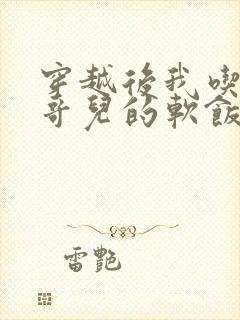 穿越後我喫
哥兒的軟飯
雷艷